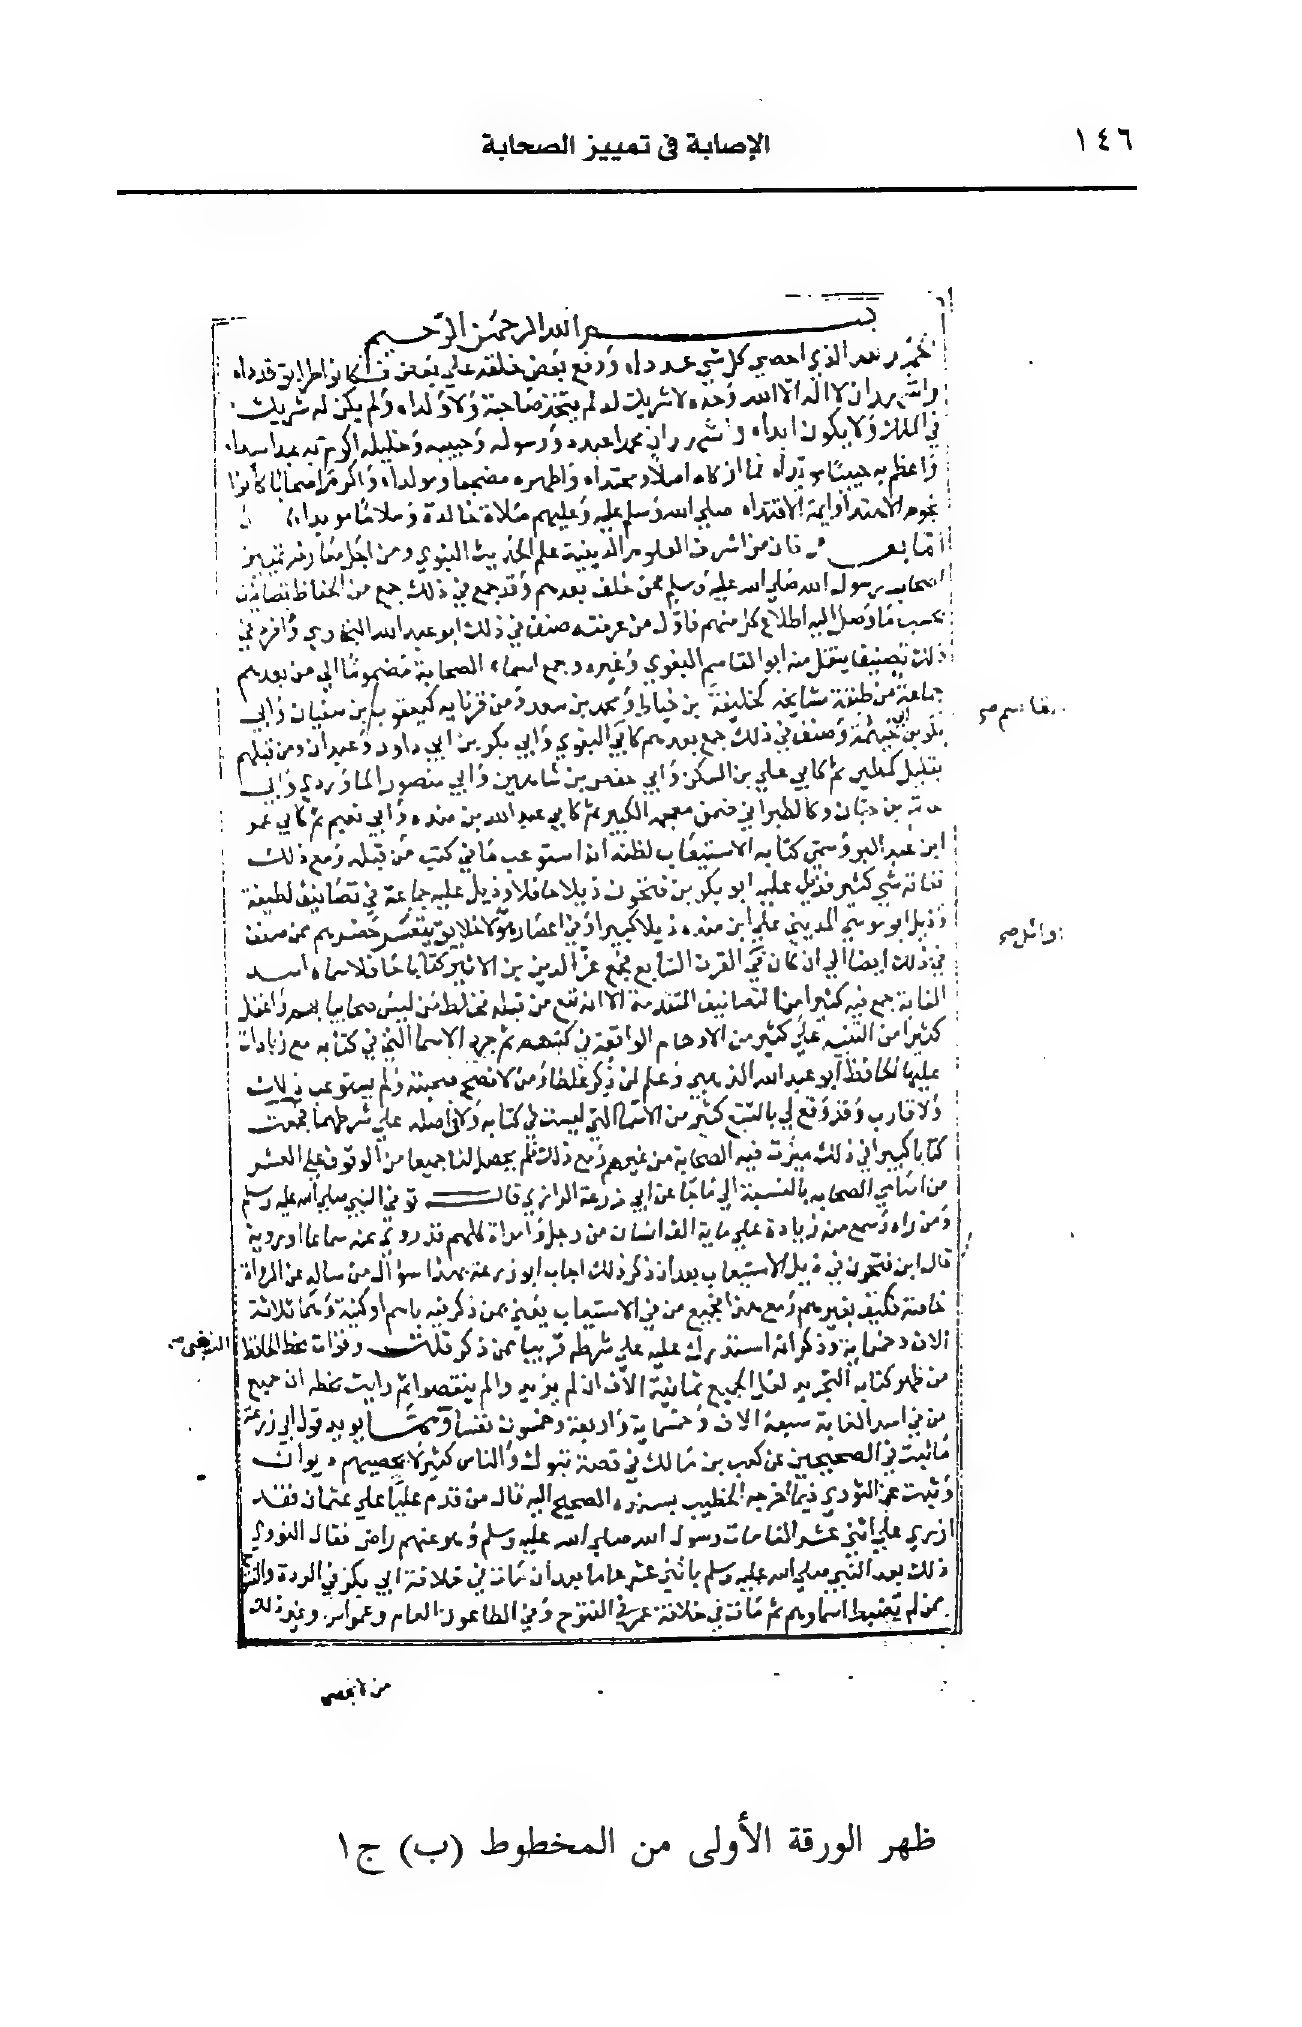 ١٤٦
الإصابة في تمييز الصحابة
بسم الله الرحمن الرحيم
الحمد لله الذي احصى كل شي عددا ورفع بعض خلقه على بعض فكانوا طرايق قددا
واشهد ان لا اله الا الله وحده لا شريك له لم يتخذ صاحبة ولا ولدا ولم يكن له شريك
في الملك ولا يكون ابدا واشهد ان محمدا عبده ورسوله وحبيبه وخليله اكرم به عبدا سيدا
واعظم به حبيبا مويدا فما ازكاه اصلا ومحتدا واطهره مضجعا ومولدا واكرم اصحابا كانوا
نجوم الاهتدا وايمة الاقتدا صلى الله وسلم عليه وعليهم صلاة خالدة وسلاما مويدا
اما بعد فان من اشرف العلوم الدينية علم الحديث النبوي ومن اجل معارفه تمييز
اصحاب رسول الله صلى الله عليه وسلم ممن خلف بعدهم وقد جمع في ذلك جمع من الحفاظ تصانيف
بحسب ما وصل اليه اطلاع كل منهم فاول من عرفته صنف في ذلك ابو عبد الله البخاري وافرد في
ذلك تصنيفا ينقل منه ابو القاسم البغوي وغيره وجمع اسماء الصحابة مضموما الى من بعدهم
جماعة من طبقة مشايخه كخليفة بن خياط ومحمد بن سعد ومن قرنايه كيعقوب بن سفيان وابي
بكر بن ابي خيثمة وصنف في ذلك جمع بعدهم كابي البغوي وابي بكر بن ابي داود وعبدان ومن قبلهم
بقليل كمطين ثم كابي علي بن السكن وابي حفص بن شاهين وابي منصور الماوردي وابي
حاتم بن حبان وكالطبراني ضمن معجمه الكبير ثم كابي عبد الله بن منده وابي نعيم ثم كابي عمر
ابن عبد البر وسمى كتابه الاستيعاب لظنه انه استوعب ما في كتب من قبله ومع ذلك
ففاته شي كثير فذيل عليه ابو بكر بن فتحون ذيلا حافلا وذيل عليه جماعة في تصانيف لطيفة
وذيل ابو موسى المديني على ابن منده ذيلا كبيرا وفي اعصار هؤلا خلايق يتعسر حصرهم ممن صنف
في ذلك ايضا الى ان كان في القرن السابع فجمع عز الدين بن الاثير كتابا حافلا سماه اسد
الغابة جمع فيه كثيرا من التصانيف المتقدمة الا انه تبع من قبله فخلط من ليس صحابيا بهم واغفل
كثيرا من التنبيه على كثير من الاوهام الواقعة في كتبهم ثم جرد الاسما التي في كتابه مع زيادات
عليها الحافظ ابو عبد الله الذهبي وعلم لمن ذكر غلطا ومن لا تصح صحبته ولم يستوعب ذلك
ولا قارب وقد وقع لي بالتتبع كثير من الاسما التي ليست في كتابه ولا في اصله على شرطهما فجمعت
كتابا كبيرا في ذلك ميزت فيه الصحابة من غيرهم ومع ذلك فلم يحصل لنا جميعا من الوقوف على العشر
من اسامي الصحابه بالنسبة الى ما جا عن ابي زرعة الرازي قال توفي النبي صلى الله عليه وسلم
ومن راه وسمع منه زيادة على ماية الف انسان من رجل وامراة كلهم قد روى عنه سماعا او روية
قال ابن فتحون في ذيل الاستيعاب بعد ان ذكر ذلك اجاب ابو زرعة بهذا سوال من ساله عن الرواة
خاصة فكيف بغيرهم ومع هذا فجميع من في الاستيعاب يعني ممن ذكر فيه باسم او كنية وهما ثلاثة
الاف وخمساية وذكر انه استدرك عليه على شرطه قريبا ممن ذكر قلت وقرات بخط الحافظ
من ظهر كتابه التجريد لعل الجميع ثمانية الاف ان لم يزيدوا لم ينقصوا ثم رايت بخطه ان جميع
من في اسد الغابة سبعة الاف وخمسماية واربعة وخمسون نفسا ومما يويد قول ابي زرعة
ما ثبت في الصحيحين عن كعب بن مالك في قصة تبوك والناس كثير لا يحصيهم ديوان
وثبت عن الثوري فيما اخرجه الخطيب بسنده الصحيح اليه قال من قدم عليا على عثمان فقد
ازرى على اثني عشر الفا مات رسول الله صلى الله عليه وسلم وهو عنهم راض فقال النووي
ذلك بعد النبي صلى الله عليه وسلم باثني عشر عاما بعد ان مات في خلافة ابي بكر في الردة والفتوح
ممن لم يضبط اسماوهم ثم مات في خلافة عمر في الفتوح وفي الطاعون العام وعمواس وغير ذلك
من لا يحصى
اوائل صح
الذهبي صح
ظهر الورقة الأولى من المخطوط (ب) ج١